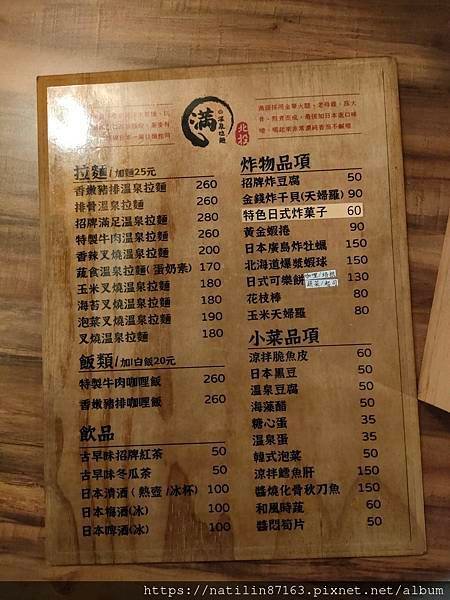 滿
溫泉拉麵
北投
拉麵/加麵25元
香嫩豬排溫泉拉麵 260
排骨溫泉拉麵 260
招牌滿足溫泉拉麵 280
特製牛肉溫泉拉麵 260
香辣叉燒溫泉拉麵 200
蔬食溫泉拉麵(蛋奶素) 170
玉米叉燒溫泉拉麵 180
海苔叉燒溫泉拉麵 180
泡菜叉燒溫泉拉麵 190
叉燒溫泉拉麵 180
飯類/加白飯20元
特製牛肉咖哩飯 260
香嫩豬排咖哩飯 260
飲品
古早味招牌紅茶 50
古早味冬瓜茶 50
日本清酒(熱壺/冰杯) 100
日本梅酒(冰) 100
日本啤酒(冰) 100
炸物品項
招牌炸豆腐 50
金錢炸干貝(天婦羅) 90
特色日式炸菓子 60
黃金蝦捲 90
日本廣島炸牡蠣 150
北海道爆漿蝦球 150
日式可樂餅 130
蔬菜/起司
花枝棒 80
玉米天婦羅 80
小菜品項
涼拌脆魚皮 60
日本黑豆 50
溫泉豆腐 50
海藻醋 50
糖心蛋 35
溫泉蛋 35
韓式泡菜 50
涼拌鱈魚肝 150
醬燒化骨秋刀魚 150
和風時蔬 60
醬悶筍片 50
https://natilin87163.pixnet.net/album